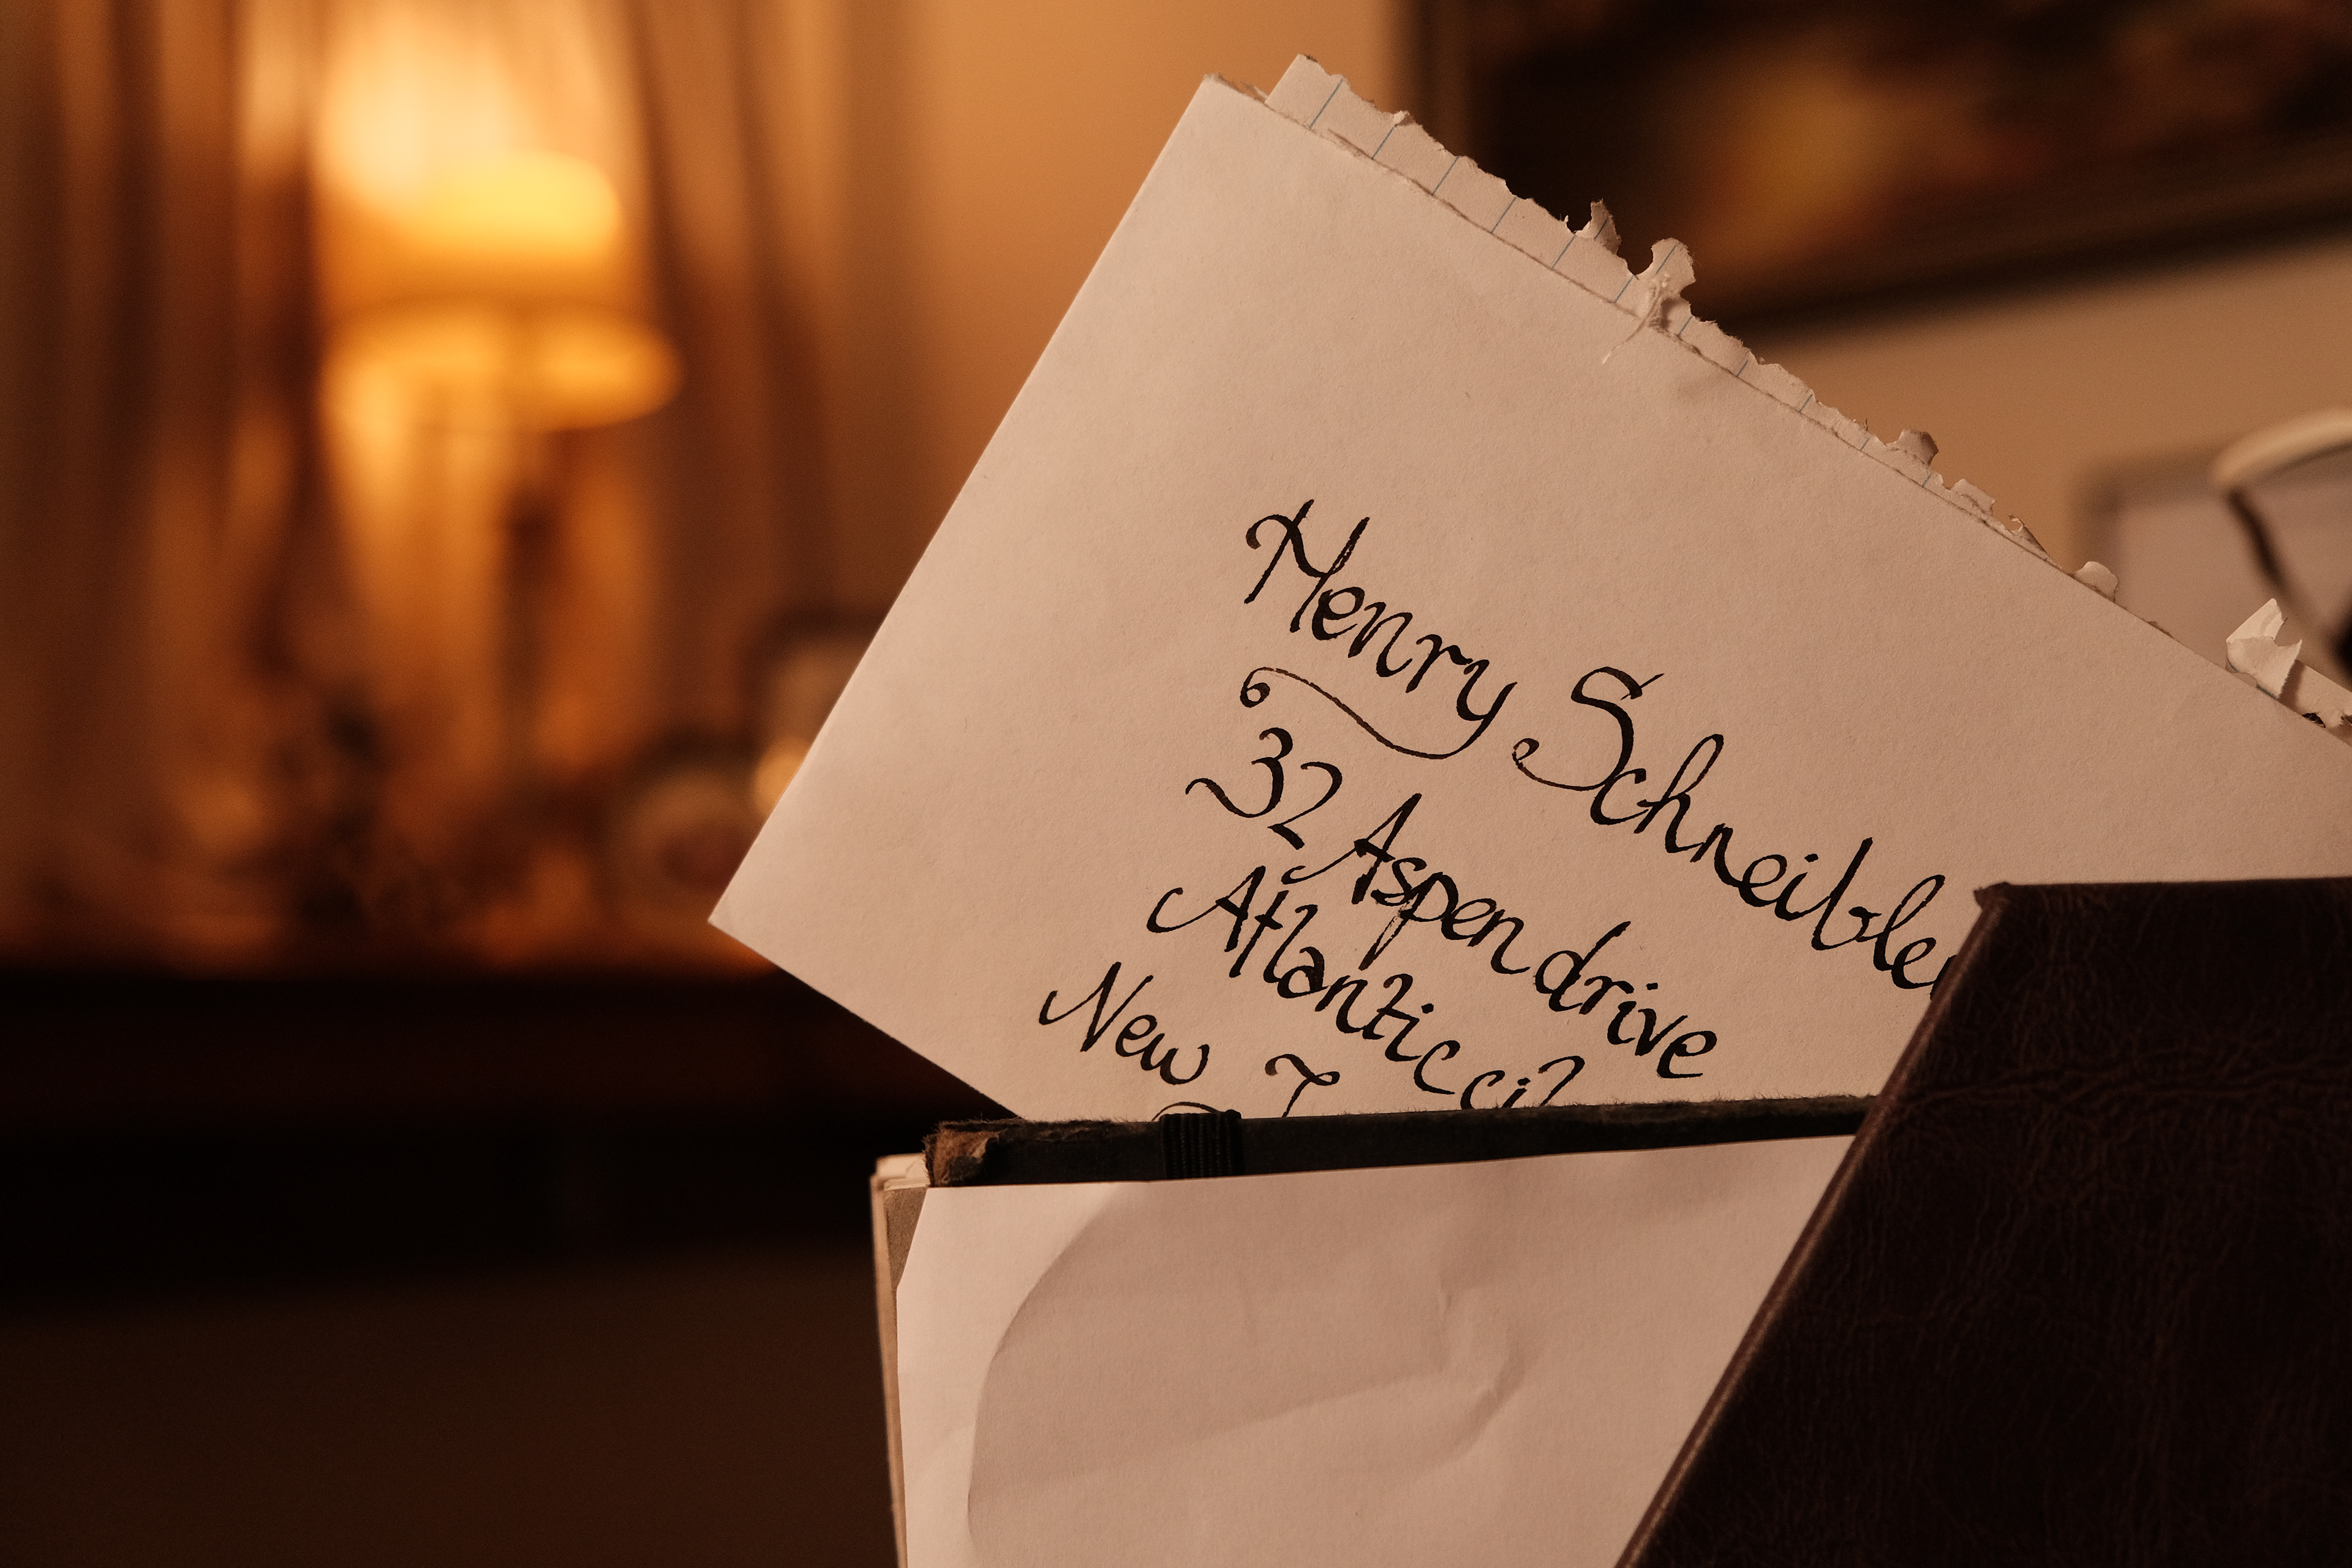 Henry Schneible
32 Aspen drive
Atlantic
New